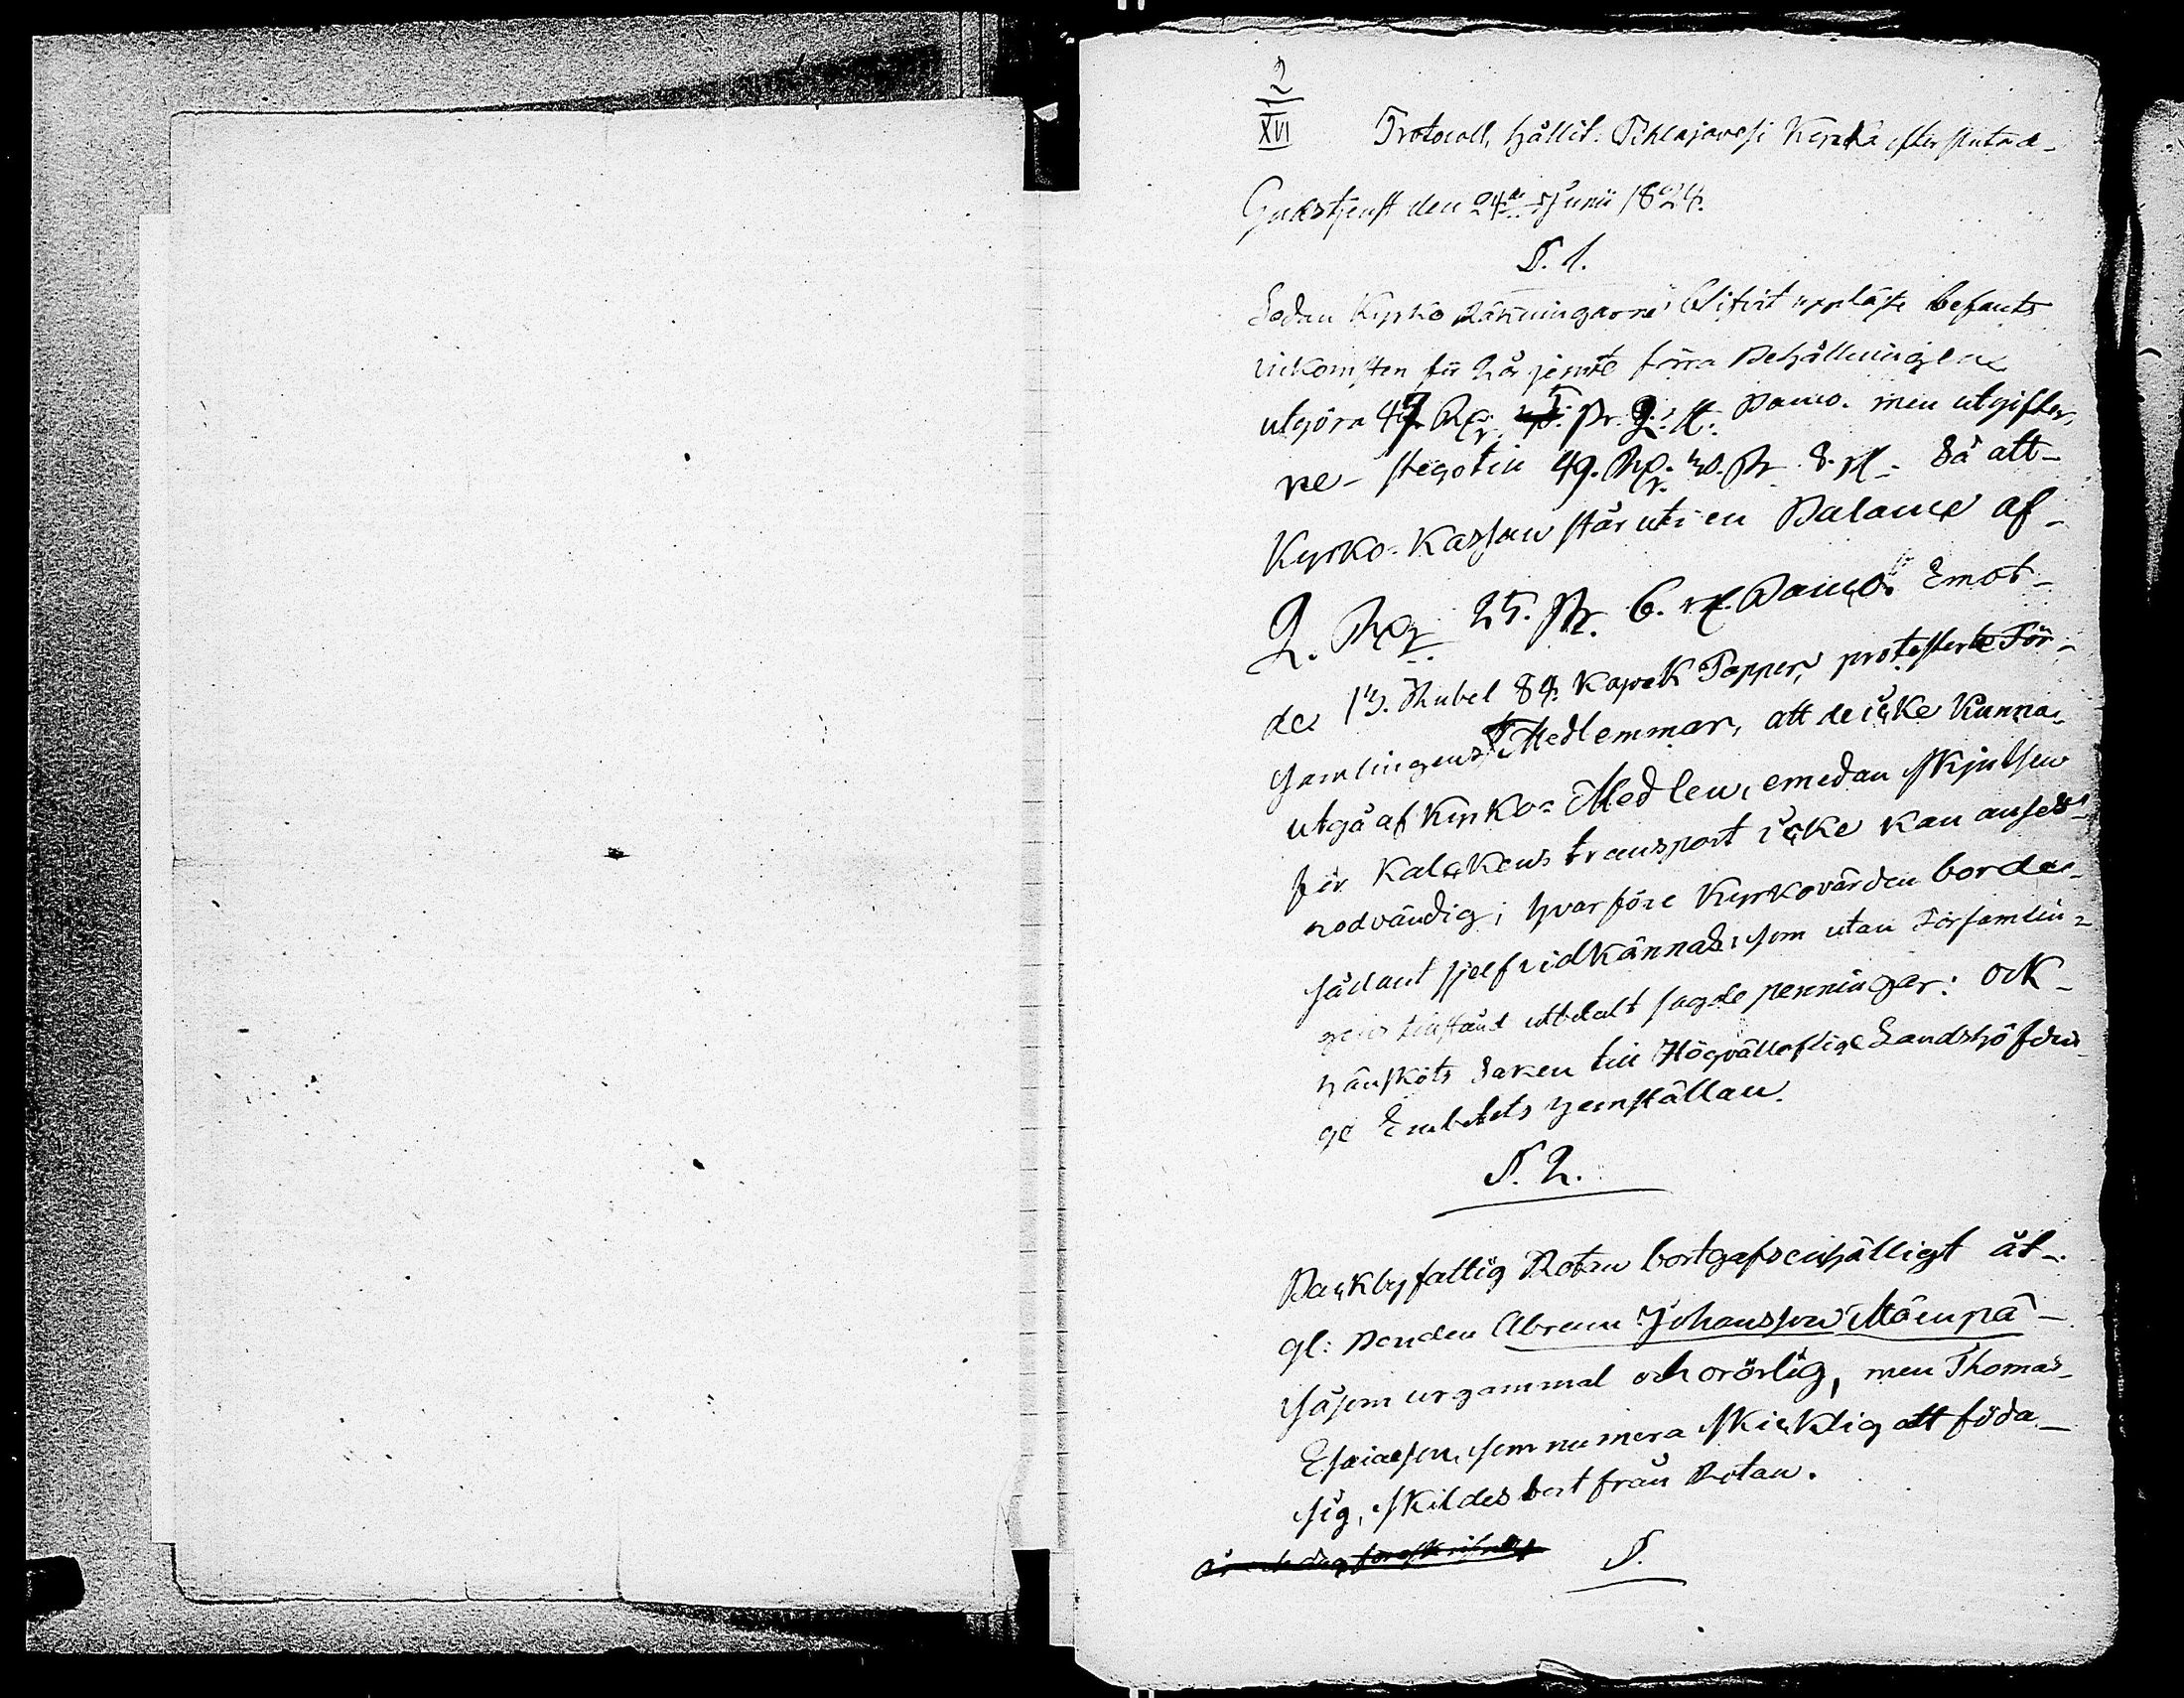 2
XVI
Protocoll, hållit i Pihlajavesi Kyrcka efter slutad
Gudstjenst den 24de Junii 1824.
§. 1.
Sedan Kyrko Räkningarne blifvit uppläste befants
inkomsten för 2 år jemte förra Behållningen
utgöra 47 R: Banco. men utgifter-
ne stegotill 49. R: 30. 8. så att
Kyrko-Kassan står uti en Balance af
2. R: 25. 6. Banco. Emot
de 13. Rubel 84 kopek Papper, protesterte För-
samlingens Medlemmar, att de icke kunna
utgå af Kyrko-Medlen, emedan skjutsen
för Kalckens transport icke kan anses
nodvändig; hvarföre Kyrkovärden borde
sådant sjelf vidkännas, som utan Församlin-
gens tillstånd utbetalt sagde penningar: ock
hänsköts saken till Högvällofliga Landshöfdin-
ge Embetets hemställan.
§. 2.
Backby fattig Rotan bortgafs enhälligt åt
gl: Bonden Abram Johansson Mäenpä
såsom urgammal och orörlig, men Thomas
Esaiasson, som numera skicklig att föda
sig, skildes bort från Rotan.
§.